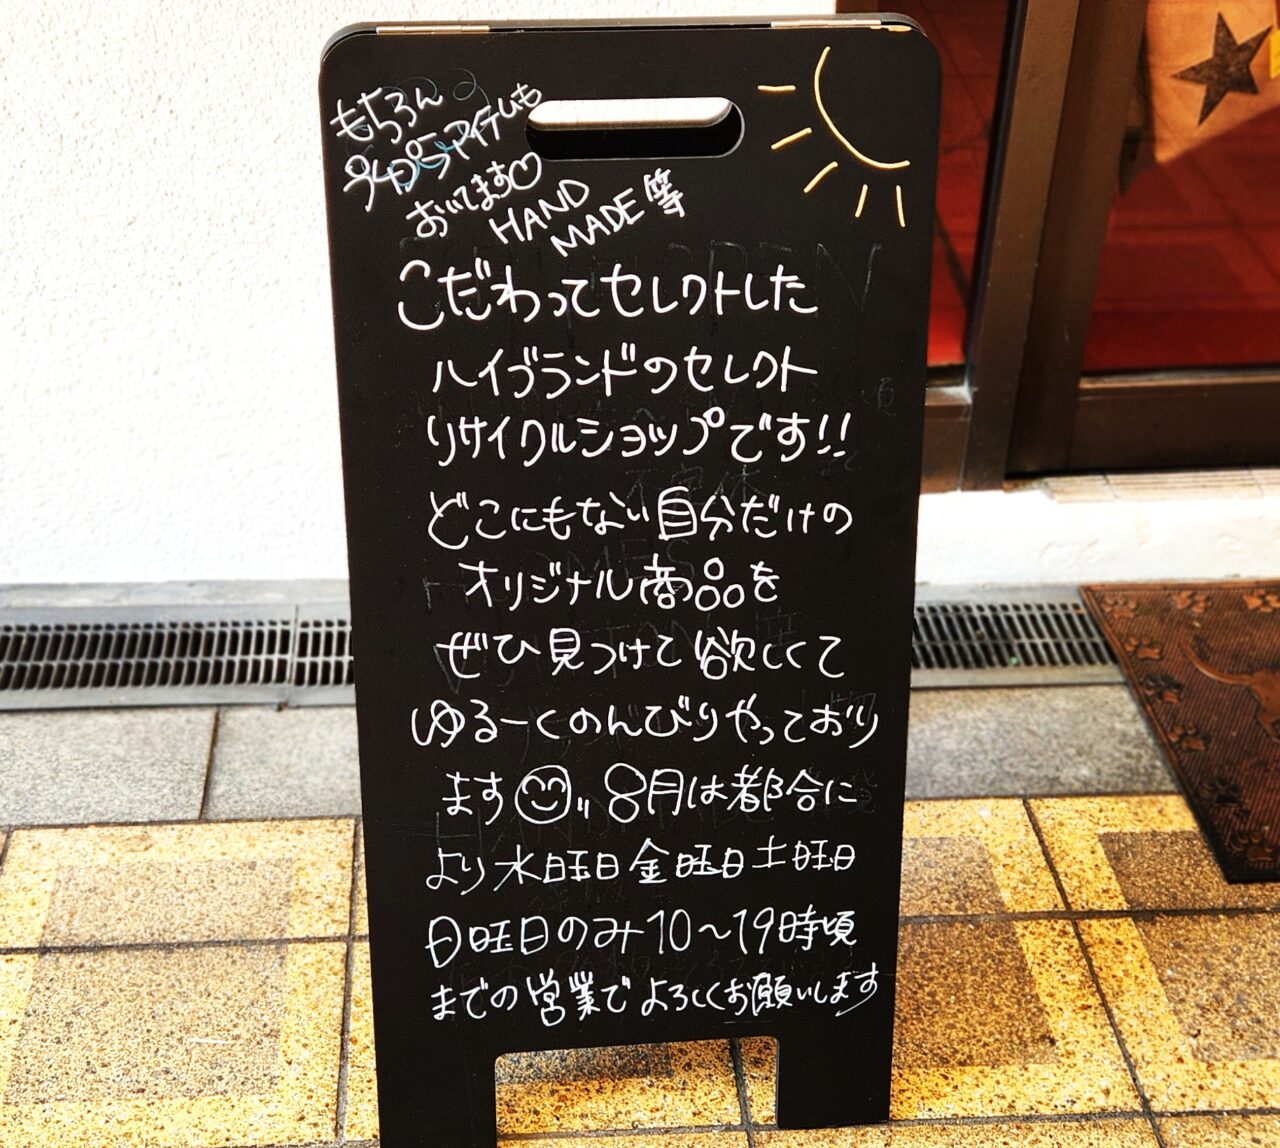 もちろん
プチプラアイテムも
おいてます♡
HAND
MADE等
こだわってセレクトした
ハイブランドのセレクト
リサイクルショップです!!
どこにもない自分だけの
オリジナル商品を
ぜひ見つけて欲しくて
ゆるーくのんびりやっており
ます 8月は都合に
より水曜日金曜日土曜日
日曜日のみ10〜19時頃
までの営業でよろしくお願いします